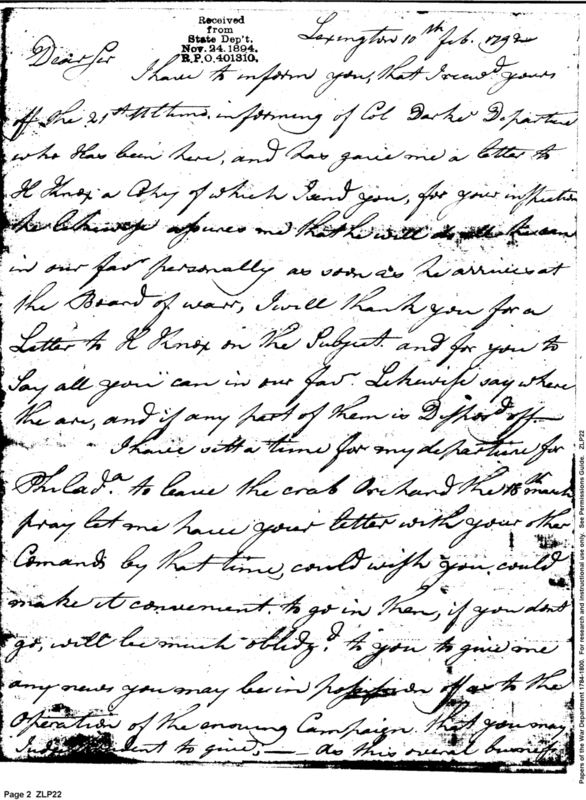 Received
from
State Dep't.
Nov. 24. 1894.
R.P.O. 401310.
Lexington 10th feb. 1792
Dear Sir
I have to inform you, that I recev'd yours
off the 21st Ultimo. informing of Col Darke Departure
who Has been here, and has gave me a letter to
H Knox a Copy of which I send you, for your inspection
he likewise assures me that he will do all he can
in our fav'r personally as soon as he arrives at
the Board of warr, I will thank you for a
Letter to H Knox on the Subject. and for you to
Say all you can in our fav'r. Likewise say where
the are, and if any part of them is Dispos'd off—
I have sett a time for my departure for
Philad.a to leave the crab Orchard the 18th march
pray let me have your letter with your other
Comands by that time, could wish you could
make it convenient to go in then, if you dont
go, will be much oblidg'd to you to give me
any news you may be in possession off as to the
Operation of the ensuing Campaign that you may
give; — As this overal business
Page 2 ZLP22
Papers of the War Department 1784-1800. For research and instructional use only. See Permissions Guide. ZLP22